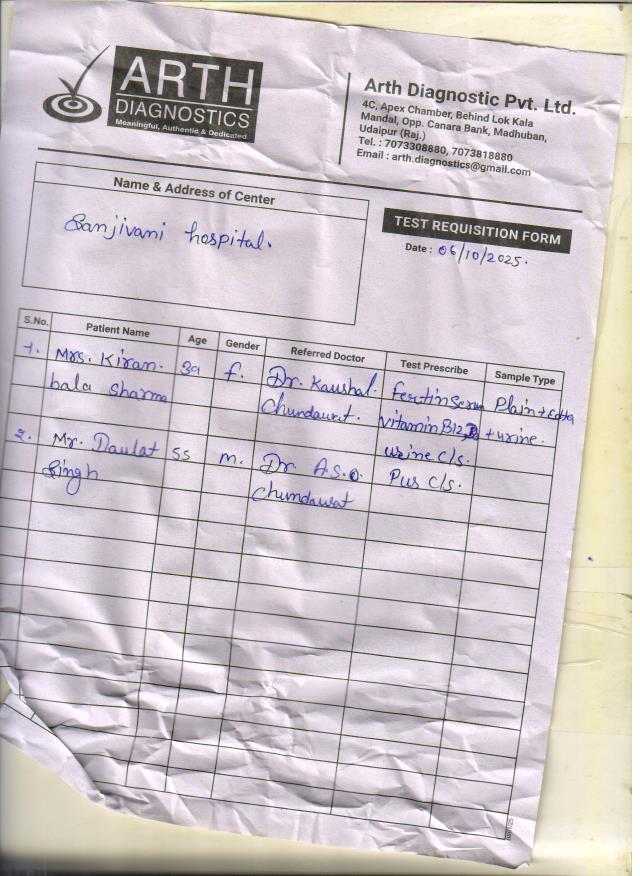 ARTH
DIAGNOSTICS
Meaningful, Authentic & Dedicated
Arth Diagnostic Pvt. Ltd.
4C, Apex Chamber, Behind Lok Kala
Mandal, Opp. Canara Bank, Madhuban,
Udaipur (Raj.)
Tel. : 7073308880, 7073818880
Email : arth.diagnostics@gmail.com
Name & Address of Center
Sanjivani hospital.
TEST REQUISITION FORM
Date : 06/10/2025.
S.No. Patient Name Age Gender Referred Doctor Test Prescribe Sample Type
1. Mrs. Kiran. f. Dr. Kaushal. Plain + Edta
bala Sharma vitamin B12, + urine.
urine C/s.
2. Mr. Daulat 55 m. Dr. A.S. Pus C/s.
Singh Chundawat